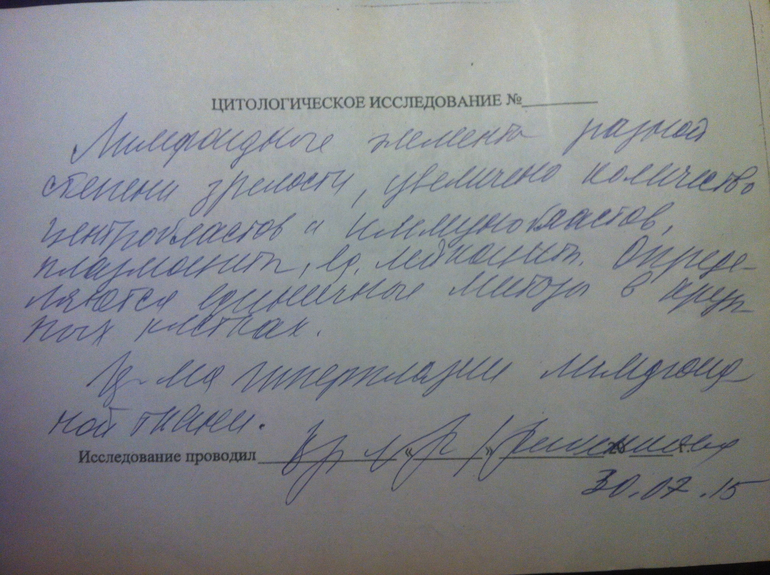 ЦИТОЛОГИЧЕСКОЕ ИССЛЕДОВАНИЕ №
Лимфоидные элементы разной
степени зрелости, увеличено количество
центробластов и иммунобластов,
плазмоциты, ед. лейкоциты. Опреде-
ляются единичные митозы в круп-
ных клетках.
Ц-ма гиперплазии лимфоид-
ной ткани.
Исследование проводил « » г.
30.07.15